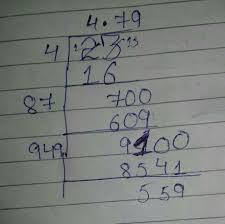 4.79
4 23
16
87 700
609
949 9100
8541
559